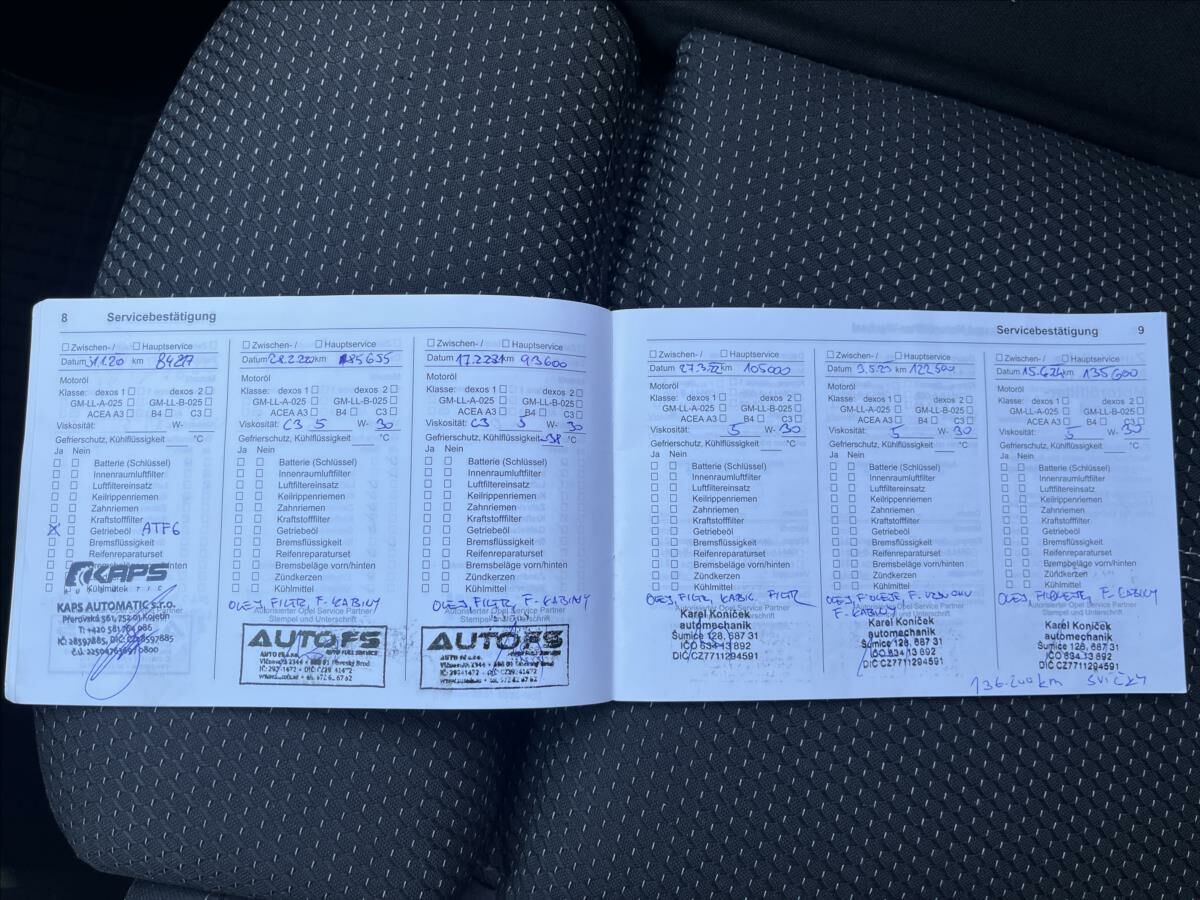 8 Servicebestätigung
☐ Zwischen-/ ☐ Hauptservice
Datum 31.1.20 km
Motoröl
Klasse: dexos 1 ☐ dexos 2 ☐
GM-LL-A-025 ☐ GM-LL-B-025 ☐
ACEA A3 ☐ B4 ☐ C3 ☐
Viskosität: W-
Gefrierschutz, Kühlflüssigkeit °C
Ja Nein
☐ ☐ Batterie (Schlüssel)
☐ ☐ Innenraumluftfilter
☐ ☐ Luftfiltereinsatz
☐ ☐ Keilrippenriemen
☐ ☐ Zahnriemen
☐ ☐ Kraftstofffilter
X ☐ Getriebeöl ATF6
☐ ☐ Bremsflüssigkeit
☐ ☐ Reifenreparaturset
☐ Bremsbeläge vorn/hinten
☐
☐ Kühlmittel
KAPS
AUTOMATIC
KAPS AUTOMATIC s.r.o.
Přerovská 561, 752 01 Kojetín
T: +420 581 764 086
IČ: 28597885, DIČ: CZ28597885
☐ Zwischen-/ ☐ Hauptservice
Datum km 85655
Motoröl
Klasse: dexos 1 ☐ dexos 2 ☐
GM-LL-A-025 ☐ GM-LL-B-025 ☐
ACEA A3 ☐ B4 ☐ C3 ☐
Viskosität: C3 5 W- 30
Gefrierschutz, Kühlflüssigkeit °C
Ja Nein
☐ ☐ Batterie (Schlüssel)
☐ ☐ Innenraumluftfilter
☐ ☐ Luftfiltereinsatz
☐ ☐ Keilrippenriemen
☐ ☐ Zahnriemen
☐ ☐ Kraftstofffilter
☐ ☐ Getriebeöl
☐ ☐ Bremsflüssigkeit
☐ ☐ Reifenreparaturset
☐ ☐ Bremsbeläge vorn/hinten
☐ ☐ Zündkerzen
☐ ☐ Kühlmittel
OLEJ, FILTR, F. KABINY
Autorisierter Opel Service Partner
Stempel und Unterschrift
AUTO FS
AUTO FUEL SERVICE
☐ Zwischen-/ ☐ Hauptservice
Datum 17.2.21 km 93600
Motoröl
Klasse: dexos 1 ☐ dexos 2 ☐
GM-LL-A-025 ☐ GM-LL-B-025 ☐
ACEA A3 ☐ B4 ☐ C3 ☐
Viskosität: C3 5 W- 30
Gefrierschutz, Kühlflüssigkeit -38 °C
Ja Nein
☐ ☐ Batterie (Schlüssel)
☐ ☐ Innenraumluftfilter
☐ ☐ Luftfiltereinsatz
☐ ☐ Keilrippenriemen
☐ ☐ Zahnriemen
☐ ☐ Kraftstofffilter
☐ ☐ Getriebeöl
☐ ☐ Bremsflüssigkeit
☐ ☐ Reifenreparaturset
☐ ☐ Bremsbeläge vorn/hinten
☐ ☐ Zündkerzen
☐ ☐ Kühlmittel
OLEJ, FILTR, F. KABINY
Autorisierter Opel Service Partner
Stempel und Unterschrift
AUTO FS
AUTO FUEL SERVICE
Servicebestätigung 9
☐ Zwischen-/ ☐ Hauptservice
Datum 27.3.22 km 105000
Motoröl
Klasse: dexos 1 ☐ dexos 2 ☐
GM-LL-A-025 ☐ GM-LL-B-025 ☐
ACEA A3 ☐ B4 ☐ C3 ☐
Viskosität: 5 W- 30
Gefrierschutz, Kühlflüssigkeit °C
Ja Nein
☐ ☐ Batterie (Schlüssel)
☐ ☐ Innenraumluftfilter
☐ ☐ Luftfiltereinsatz
☐ ☐ Keilrippenriemen
☐ ☐ Zahnriemen
☐ ☐ Kraftstofffilter
☐ ☐ Getriebeöl
☐ ☐ Bremsflüssigkeit
☐ ☐ Reifenreparaturset
☐ ☐ Bremsbeläge vorn/hinten
☐ ☐ Zündkerzen
☐ ☐ Kühlmittel
OLEJ, FILTR, KABIN. FILTR
Autorisierter Opel Service Partner
Stempel und Unterschrift
Karel Koníček
automechanik
Šumice 128, 687 31
IČO 634 13 892
DIČ CZ7711294591
☐ Zwischen-/ ☐ Hauptservice
Datum km 122500
Motoröl
Klasse: dexos 1 ☐ dexos 2 ☐
GM-LL-A-025 ☐ GM-LL-B-025 ☐
ACEA A3 ☐ B4 ☐ C3 ☐
Viskosität: 5 W- 30
Gefrierschutz, Kühlflüssigkeit °C
Ja Nein
☐ ☐ Batterie (Schlüssel)
☐ ☐ Innenraumluftfilter
☐ ☐ Luftfiltereinsatz
☐ ☐ Keilrippenriemen
☐ ☐ Zahnriemen
☐ ☐ Kraftstofffilter
☐ ☐ Getriebeöl
☐ ☐ Bremsflüssigkeit
☐ ☐ Reifenreparaturset
☐ ☐ Bremsbeläge vorn/hinten
☐ ☐ Zündkerzen
☐ ☐ Kühlmittel
OLEJ, F. OLEJE, F.
F. KABINY
Karel Koníček
automechanik
Šumice 128, 687 31
IČO 634 13 892
DIČ CZ7711294591
☐ Zwischen-/ ☐ Hauptservice
Datum 15.4.24 km 135600
Motoröl
Klasse: dexos 1 ☐ dexos 2 ☐
GM-LL-A-025 ☐ GM-LL-B-025 ☐
ACEA A3 ☐ B4 ☐ C3 ☐
Viskosität: 5 W- 30
Gefrierschutz, Kühlflüssigkeit °C
Ja Nein
☐ ☐ Batterie (Schlüssel)
☐ ☐ Innenraumluftfilter
☐ ☐ Luftfiltereinsatz
☐ ☐ Keilrippenriemen
☐ ☐ Zahnriemen
☐ ☐ Kraftstofffilter
☐ ☐ Getriebeöl
☐ ☐ Bremsflüssigkeit
☐ ☐ Reifenreparaturset
☐ ☐ Bremsbeläge vorn/hinten
☐ ☐ Zündkerzen
☐ ☐ Kühlmittel
OLEJ, F. KABINY
Autorisierter Opel Service Partner
Stempel und Unterschrift
Karel Koníček
automechanik
Šumice 128, 687 31
IČO 634 13 892
DIČ CZ7711294591
136.200 km SVÍČKY